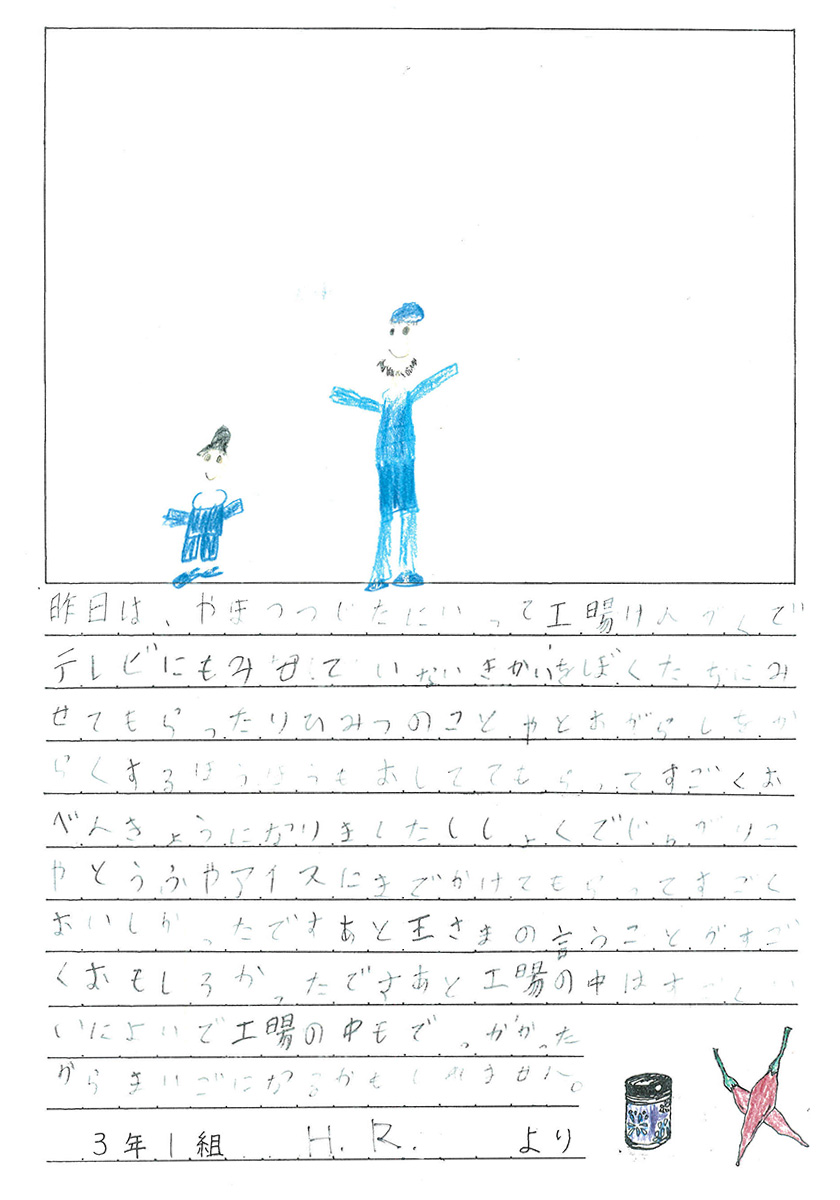 昨日は、やまつつじたにいって工場けんがくで
テレビにもみせていないきかいをぼくたちにみ
せてもらったりひみつのことやとおがらしをか
らくするほうほうもおしててもらってすごくお
べんきょうになりましたししょくでじゃがりこ
やとうふやアイスにまでかけてもらってすごく
おいしかったですあと王さまの言うことがすご
くおもしろかったですあと工場の中はすごくい
いによいで工場の中もでっかかった
がらまいごになるかもしれません。
3年1組 H.R. より